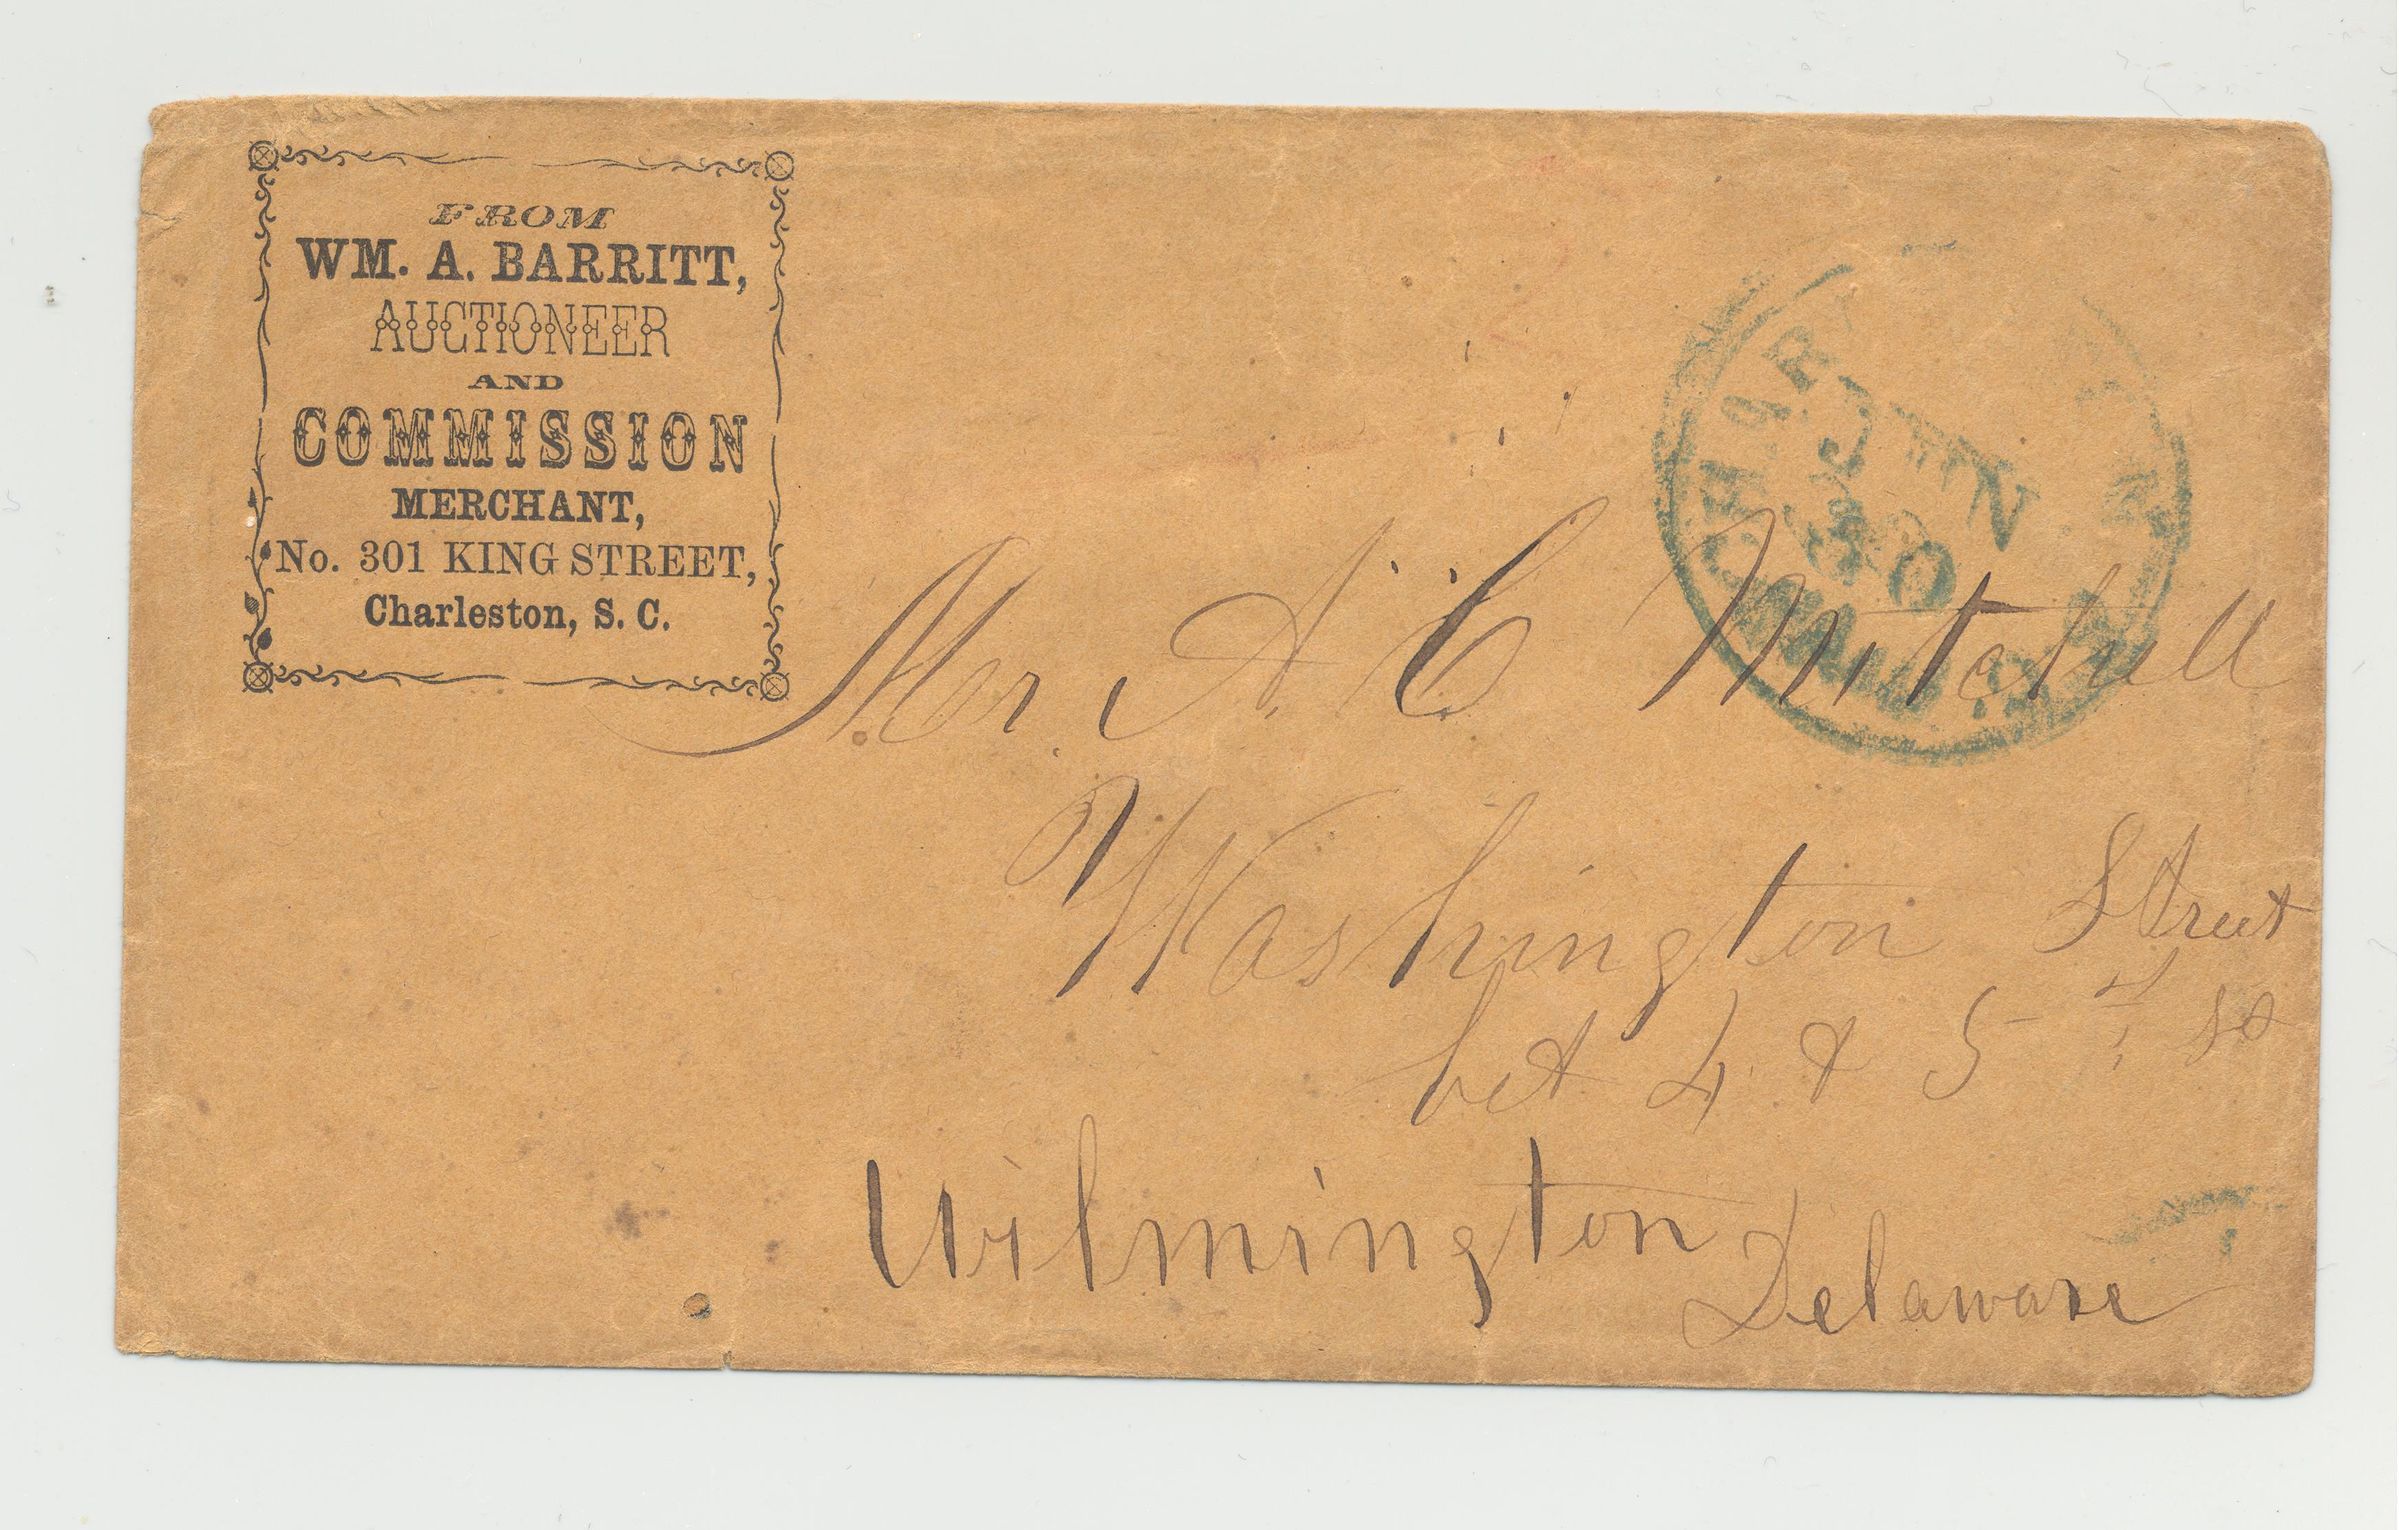 FROM
WM. A. BARRITT,
AUCTIONEER
AND
COMMISSION
MERCHANT,
No. 301 KING STREET,
Charleston, S. C.
JUN
30
Mr. A. C. Mitchell
Washington Street
bet 4 & 5th st
Wilmington
Delaware